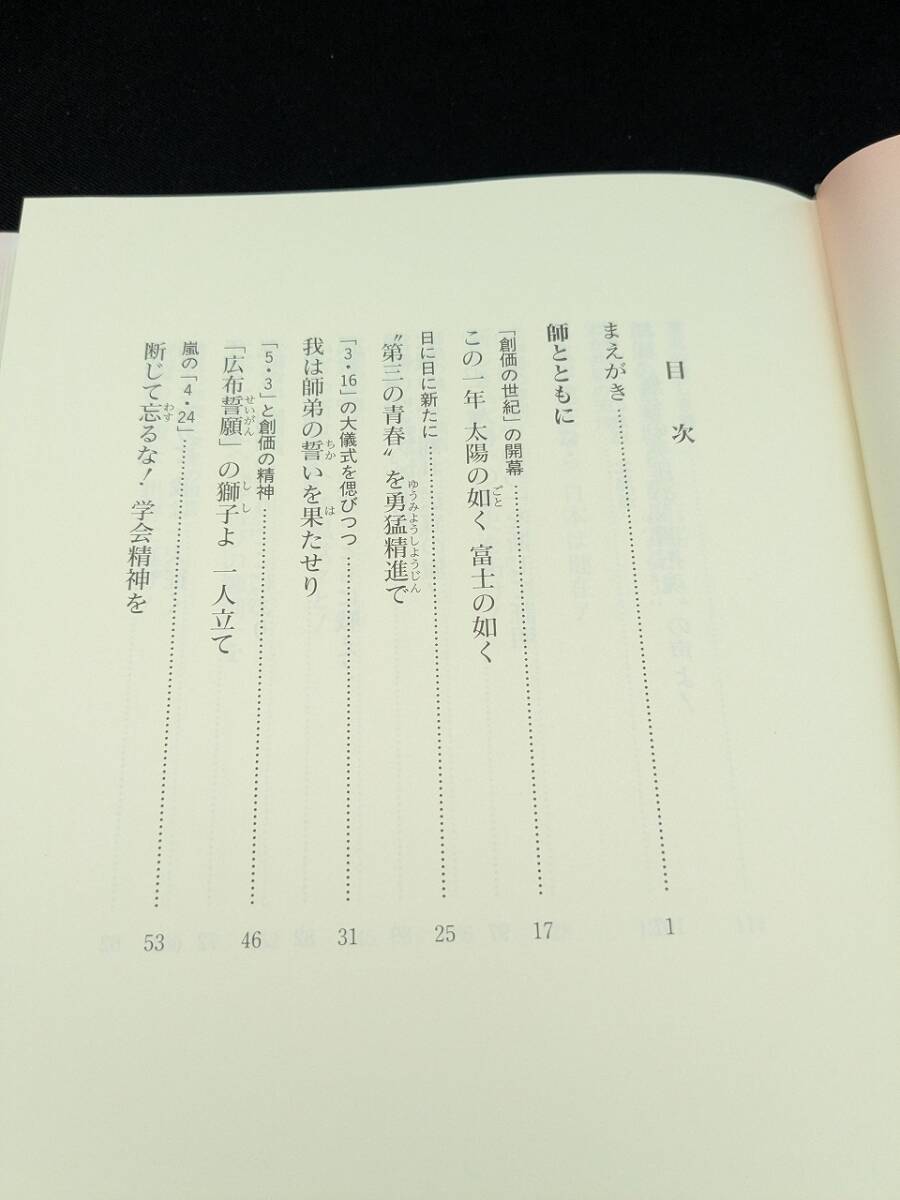 目次
まえがき…………1
師とともに
「創価の世紀」の開幕…………17
この一年 太陽の如く 富士の如く
日に日に新たに…………25
〝第三の青春〟を勇猛精進で
「3・16」の大儀式を偲びつつ…………31
我は師弟の誓いを果たせり
「5・3」と創価の精神…………46
「広布誓願」の獅子よ 一人立て
嵐の「4・24」…………53
断じて忘るな！ 学会精神を